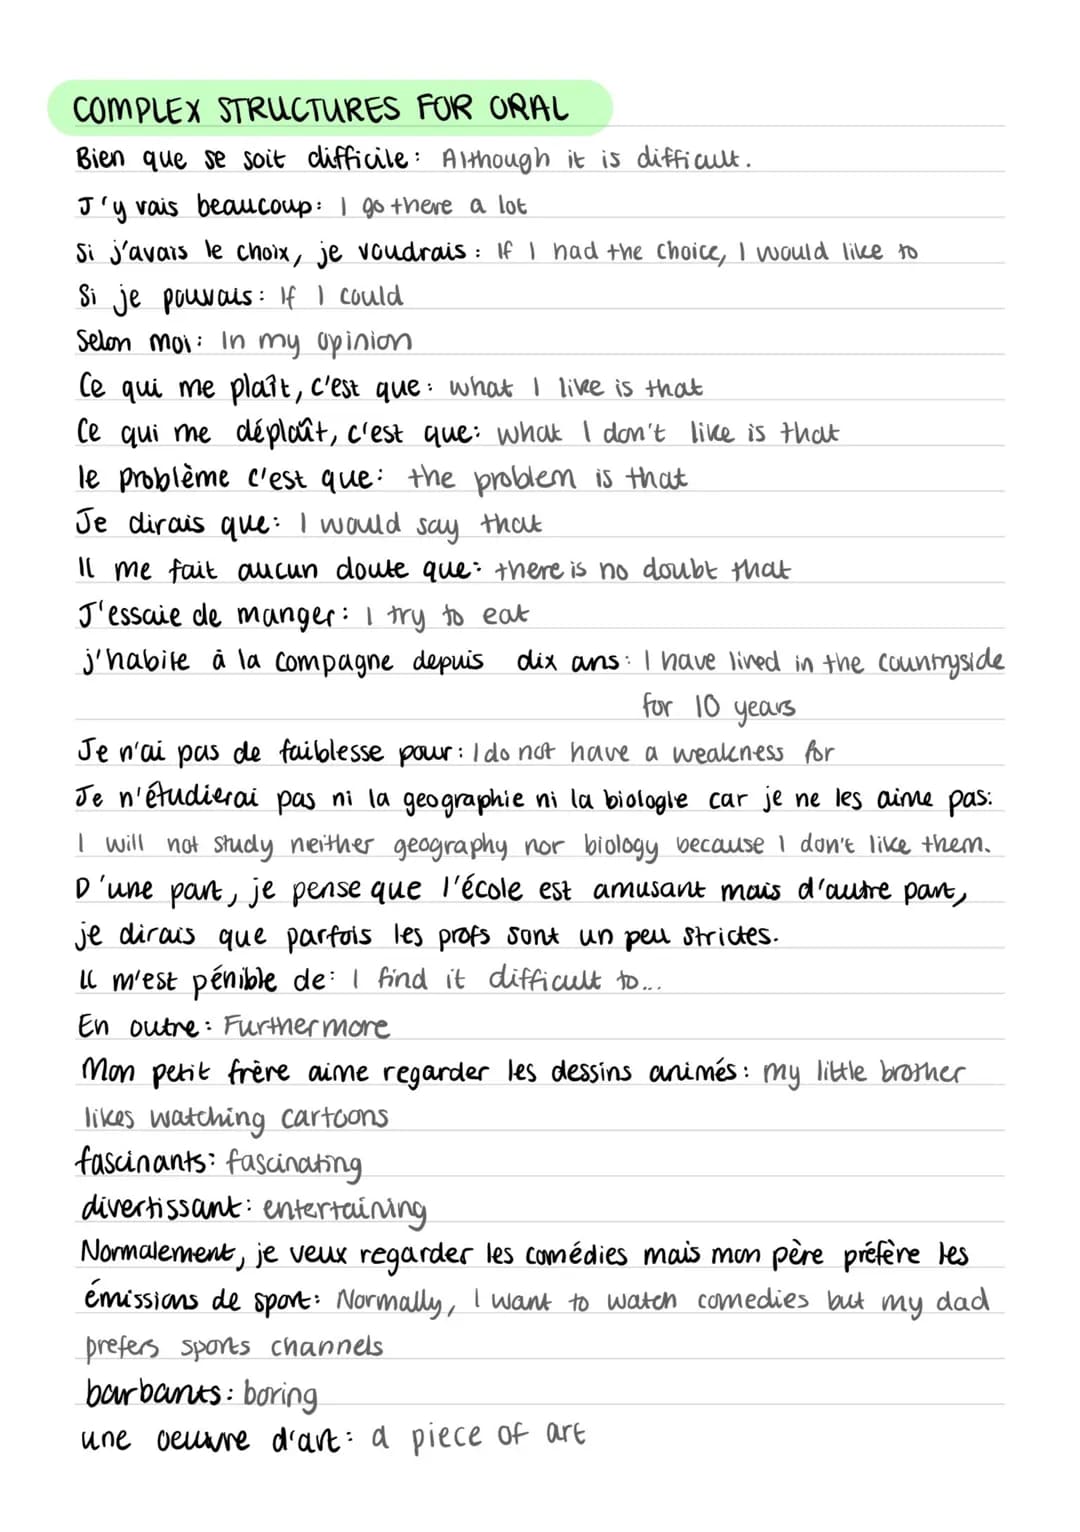 COMPLEX STRUCTURES FOR ORAL
Bien que se soit difficile: Although it is difficult.
J'y vais beaucoup: I go there a lot
Si j'avais le choix, je voudrais: If I had the choice, I would like to
Si je pouvais: If I could
Selon moi: In my opinion
Ce qui me plaît, c'est que: what I like is that
Ce qui me déplaît, c'est que: what I don't like is that
le problème c'est que: the problem is that
Je dirais que: I would say that
Il me fait aucun doute que: there is no doubt that
J'essaie de manger: I try to eat
j'habite à la compagne depuis dix ans: I have lived in the countryside
for 10 years
Je n'ai pas de faiblesse pour: I do not have a weakness for
Je n'étudierai pas ni la geographie ni la biologie car je ne les aime pas:
I will not study neither geography nor biology because I don't like them.
D'une part, je pense que l'école est amusant mais d'autre part,
je dirais que parfois les profs sont un peu strictes.
Il m'est pénible de: I find it difficult to...
En outre: Furthermore
Mon petit frère aime regarder les dessins animés: my little brother
likes watching cartoons
fascinants: fascinating
divertissant: entertaining
Normalement, je veux regarder les comédies mais mon père préfère les
émissions de sport: Normally, I want to watch comedies but my dad
prefers sports channels
barbants: boring
une oeuvre d'art: a piece of art